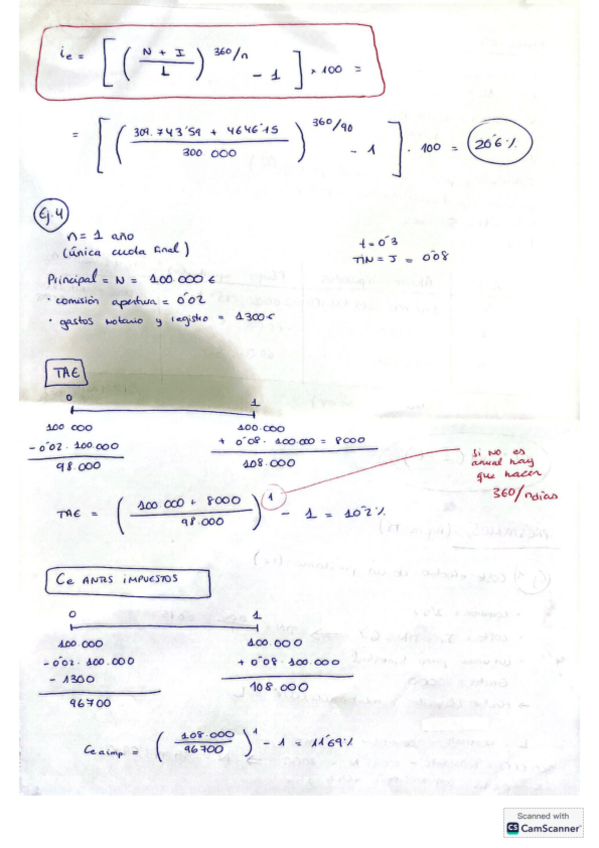 ie = [ ( N + I / L ) 360/n - 1 ] * 100 =
= [ ( 309.743'59 + 4646'15 / 300 000 ) 360/90 - 1 ] . 100 = 20'6 %
Ej. 4
n = 1 año
(única cuota final)
t = 0'3
TIN = J = 0'08
Principal = N = 100 000 €
· comisión apertura = 0'02
· gastos notario y registro = 1300 €
TAE
0 1
100 000 100.000
- 0'02 . 100.000 + 0'08 . 100.000 = 8000
98.000 108.000
Si NO es
anual hay
que hacer
360/ndias
TAE = ( 100 000 + 8000 / 98.000 ) 1 - 1 = 10'2 %
Ce ANTES IMPUESTOS
0 1
100 000 100 000
- 0'02 . 100.000 + 0'08 . 100.000
- 1300 108.000
96700
Ce aimp = ( 108.000 / 96700 ) 1 - 1 = 11'69 %
Scanned with
CS CamScanner